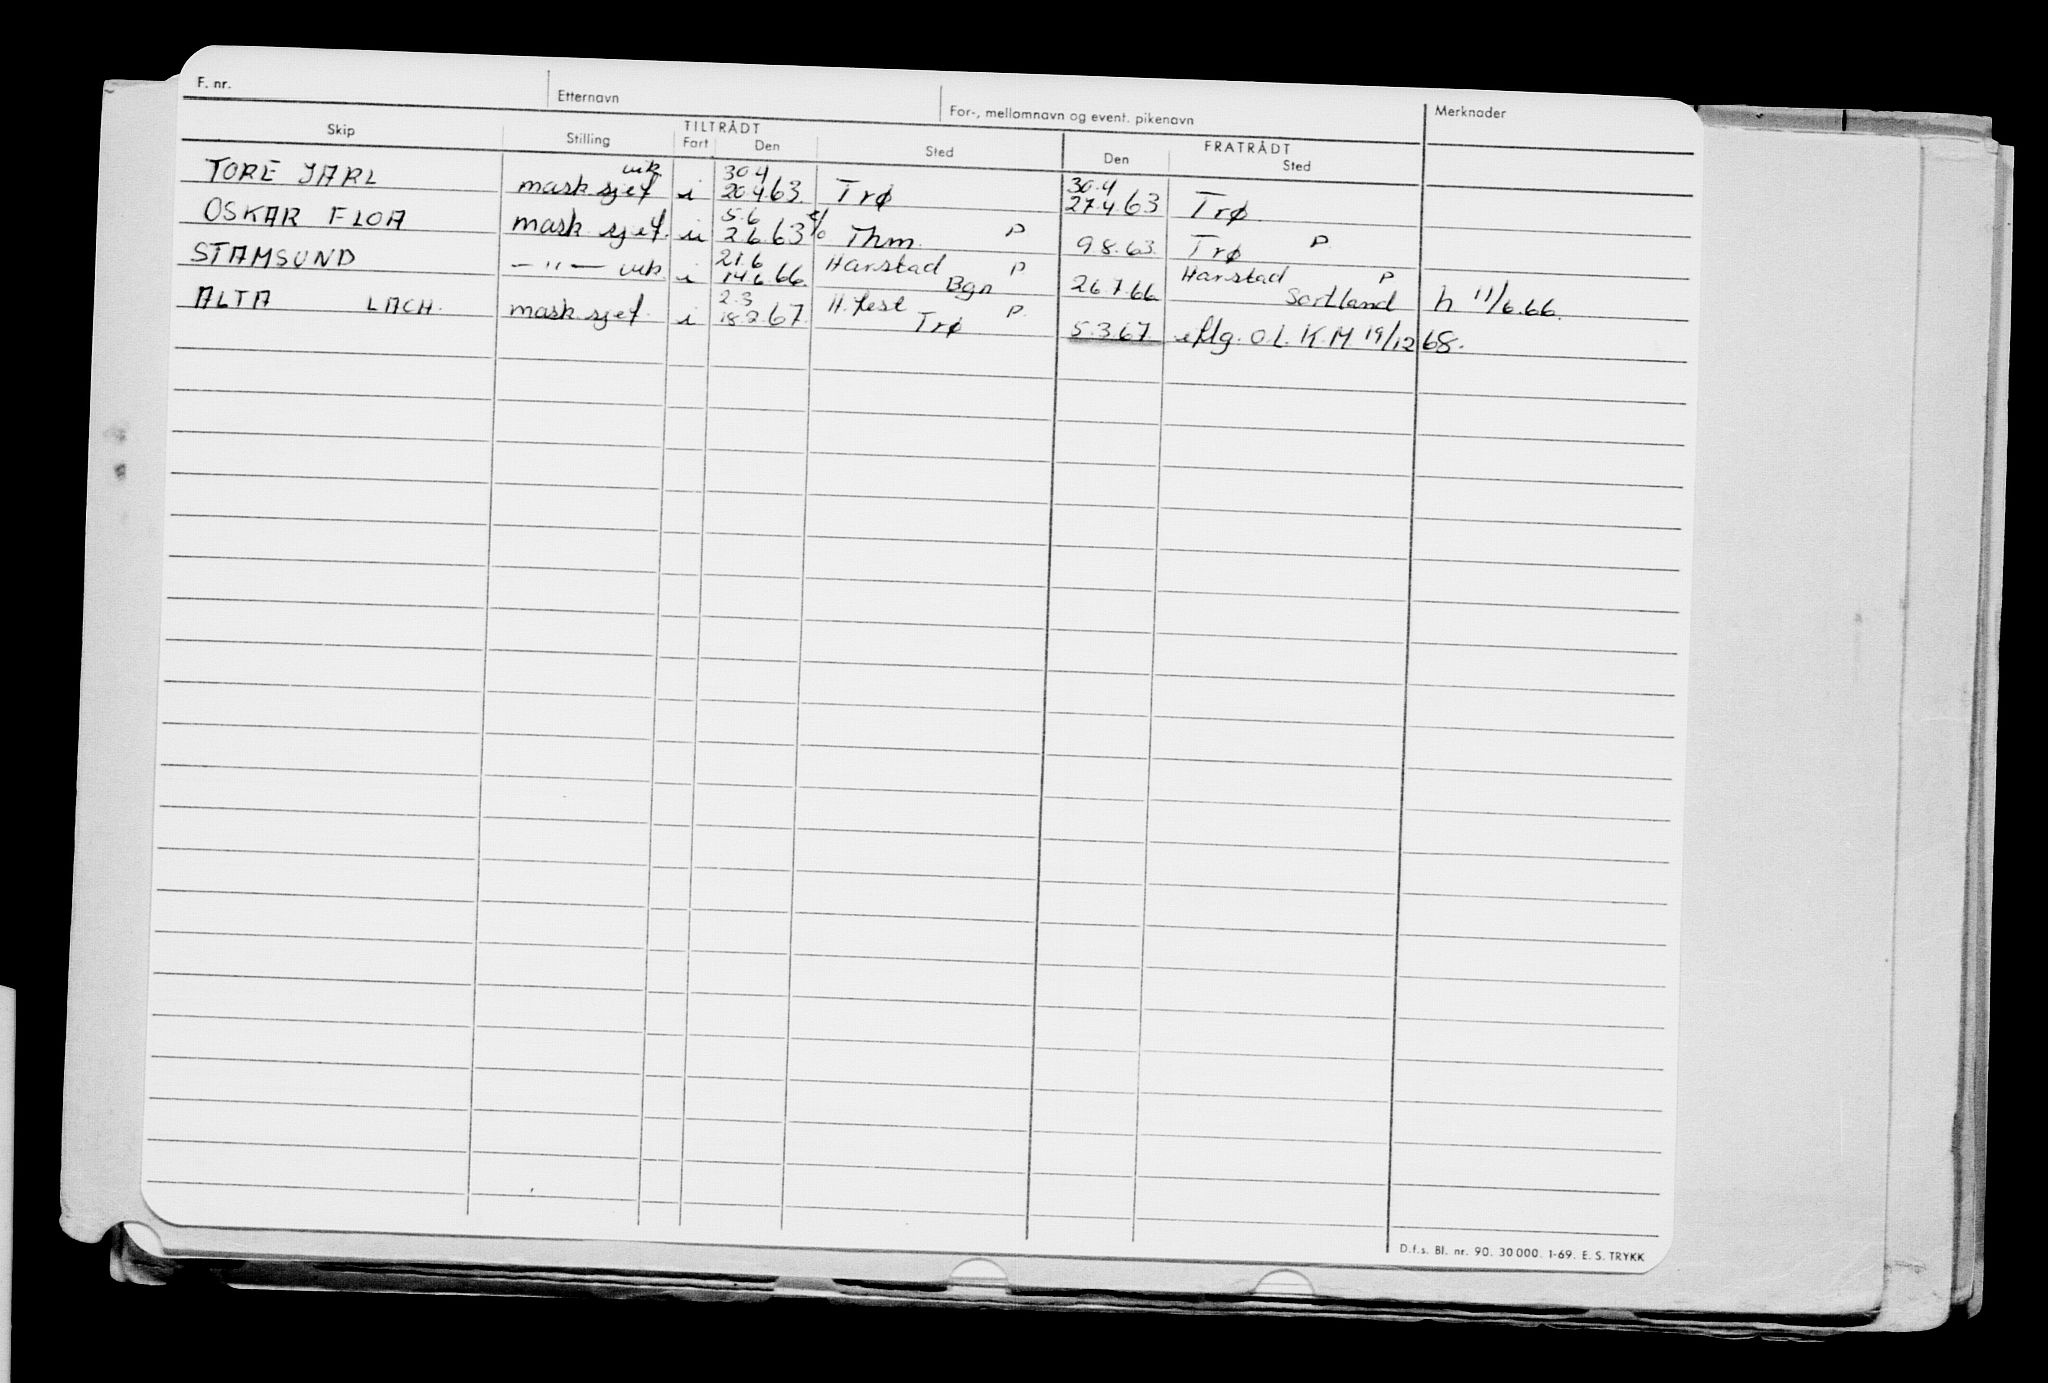 F. nr. Etternavn For-, mellomnavn og event. pikenavn Merknader
Skip Stilling TILTRÅDT Fart Den Sted FRATRÅDT Den Sted
vik. 30.4 30.4
TORE JARL mask.sjef i 20.4.63. Trø 27.4.63 Trø
5.6
OSKAR FLOA mask.sjef. u 2.6.63 e/o Thm. P 9.8.63. Trø P
21.6 Harstad P Harstad P
STAMSUND — " — vik. i 14.6.66 Bgn 26.7.66 Sortland h 11/6.66.
2.3 H.fest P.
ALTA LACH. mask.sjef. i 18.2.67. Trø 5.3.67. iflg. O.L. K.M 19/12 68.
D.f.s. Bl. nr. 90. 30 000. 1-69. E. S. TRYKK